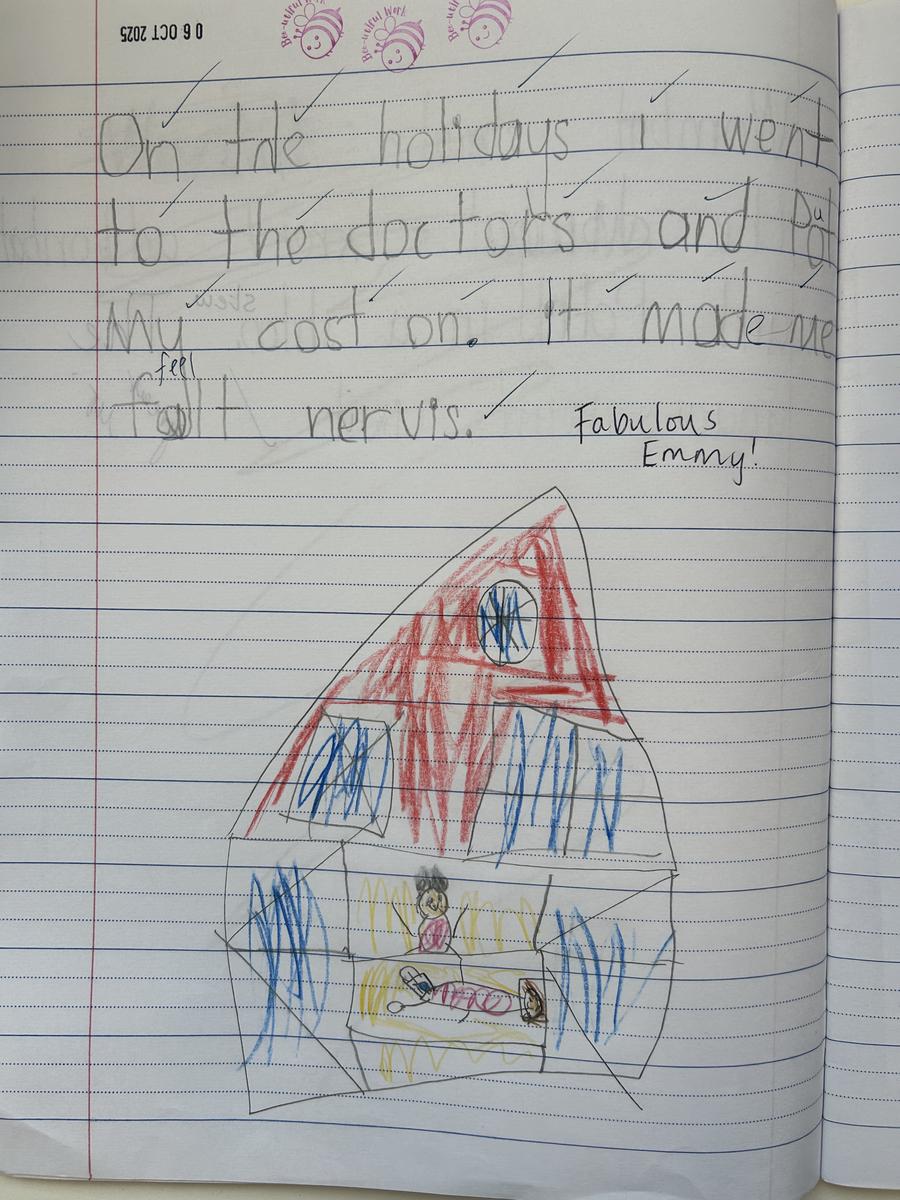 06 OCT 2025
Bee-utiful Work
Bee-utiful Work
Bee-utiful Work
On the holidays i went
to the doctors and Pot
put
My cost on. It made me
feel
nervis.
Fabulous
Emmy!